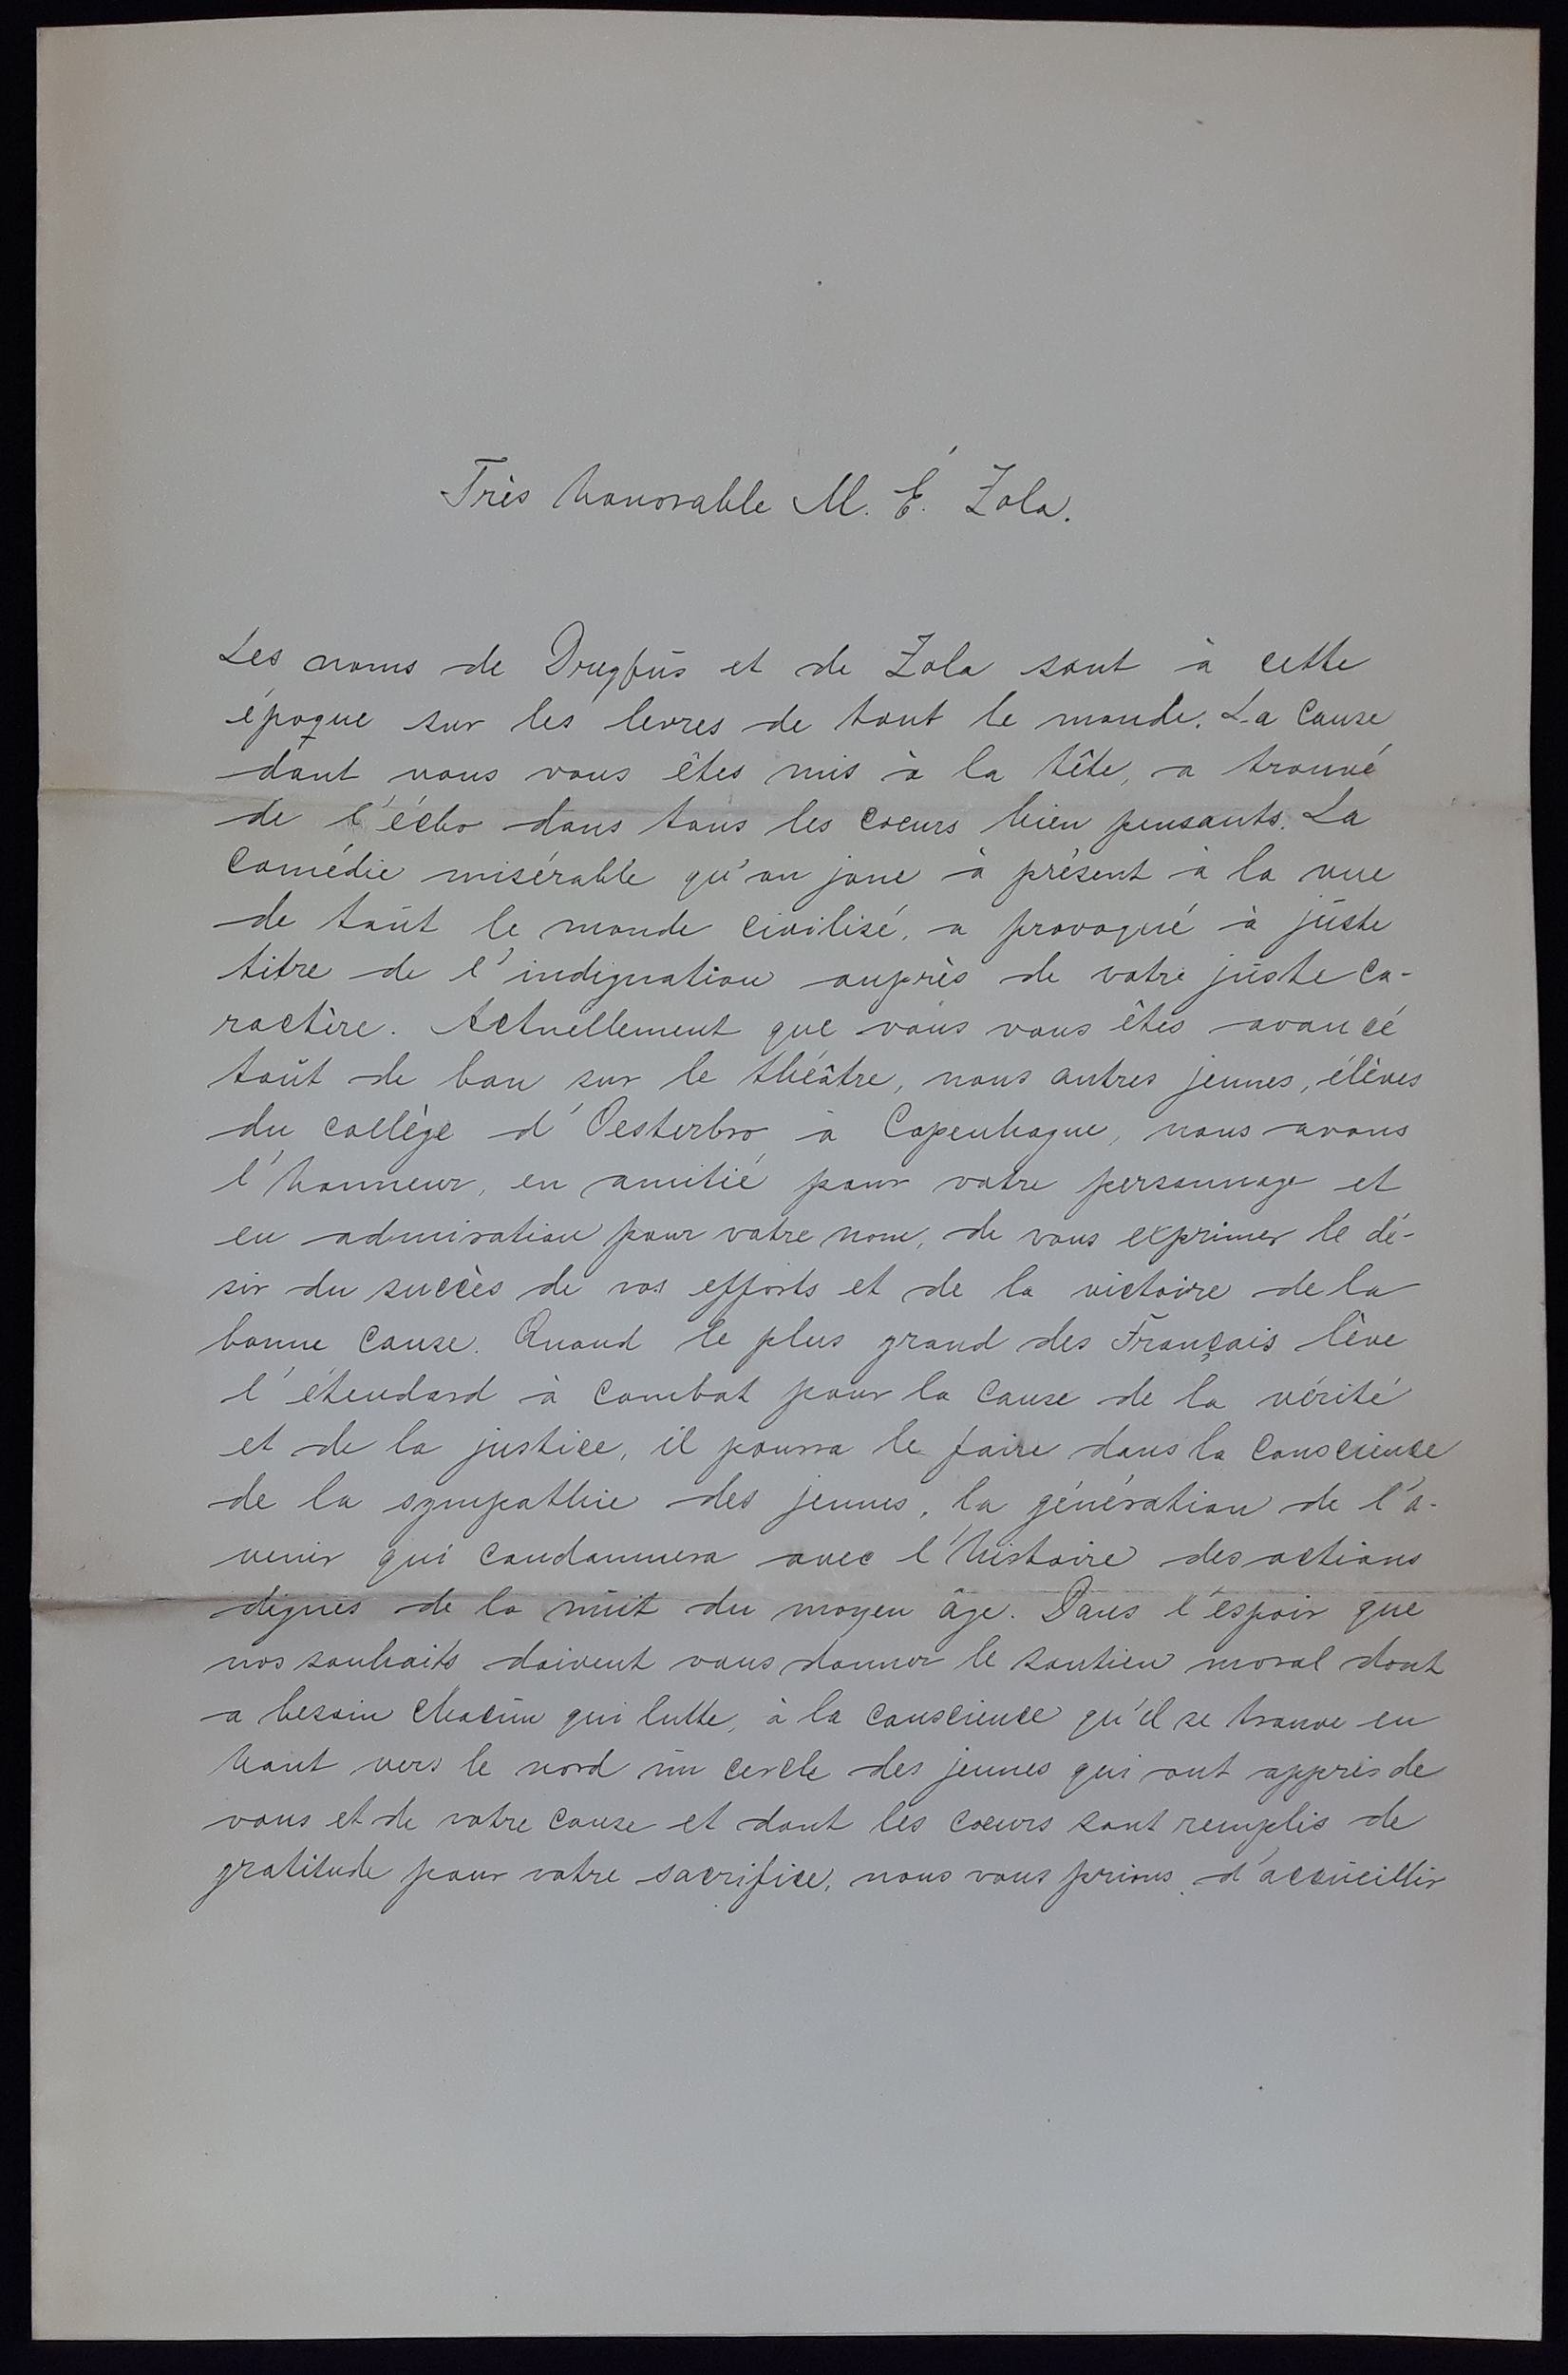 Très honorable M. É. Zola.
Les noms de Dreyfus et de Zola sont à cette
époque sur les levres de tout le monde. La cause
dont vous vous êtes mis à la tête, a trouvé
de l'écho dans tous les coeurs bien pensants. La
comédie misérable qu'on joue à présent à la vue
de tout le monde civilisé, a provoqué à juste
titre de l'indignation auprès de votre juste ca-
ractère. Actuellement que vous vous êtes avancé
tout de bon sur le théâtre, nous autres jeunes, élèves
du collège d'Oesterbro à Copenhague, nous avons
l'honneur, en amitié pour votre personnage et
en admiration pour votre nom, de vous exprimer le dé-
sir du succès de vos efforts et de la victoire de la
bonne cause. Quand le plus grand des Français lève
l'étendard à combat pour la cause de la vérité
et de la justice, il pourra le faire dans la conscience
de la sympathie des jeunes, la génération de l'a-
venir qui condamnera avec l'histoire des actions
dignes de la nuit du moyen âge. Dans l'espoir que
nos souhaits doivent vous donner le soutien moral dont
a besoin chacun qui lutte, à la conscience qu'il se trouve en
haut vers le nord un cercle des jeunes qui ont appris de
vous et de votre cause et dont les coeurs sont remplis de
gratitude pour votre sacrifice, nous vous prions d'accueillir